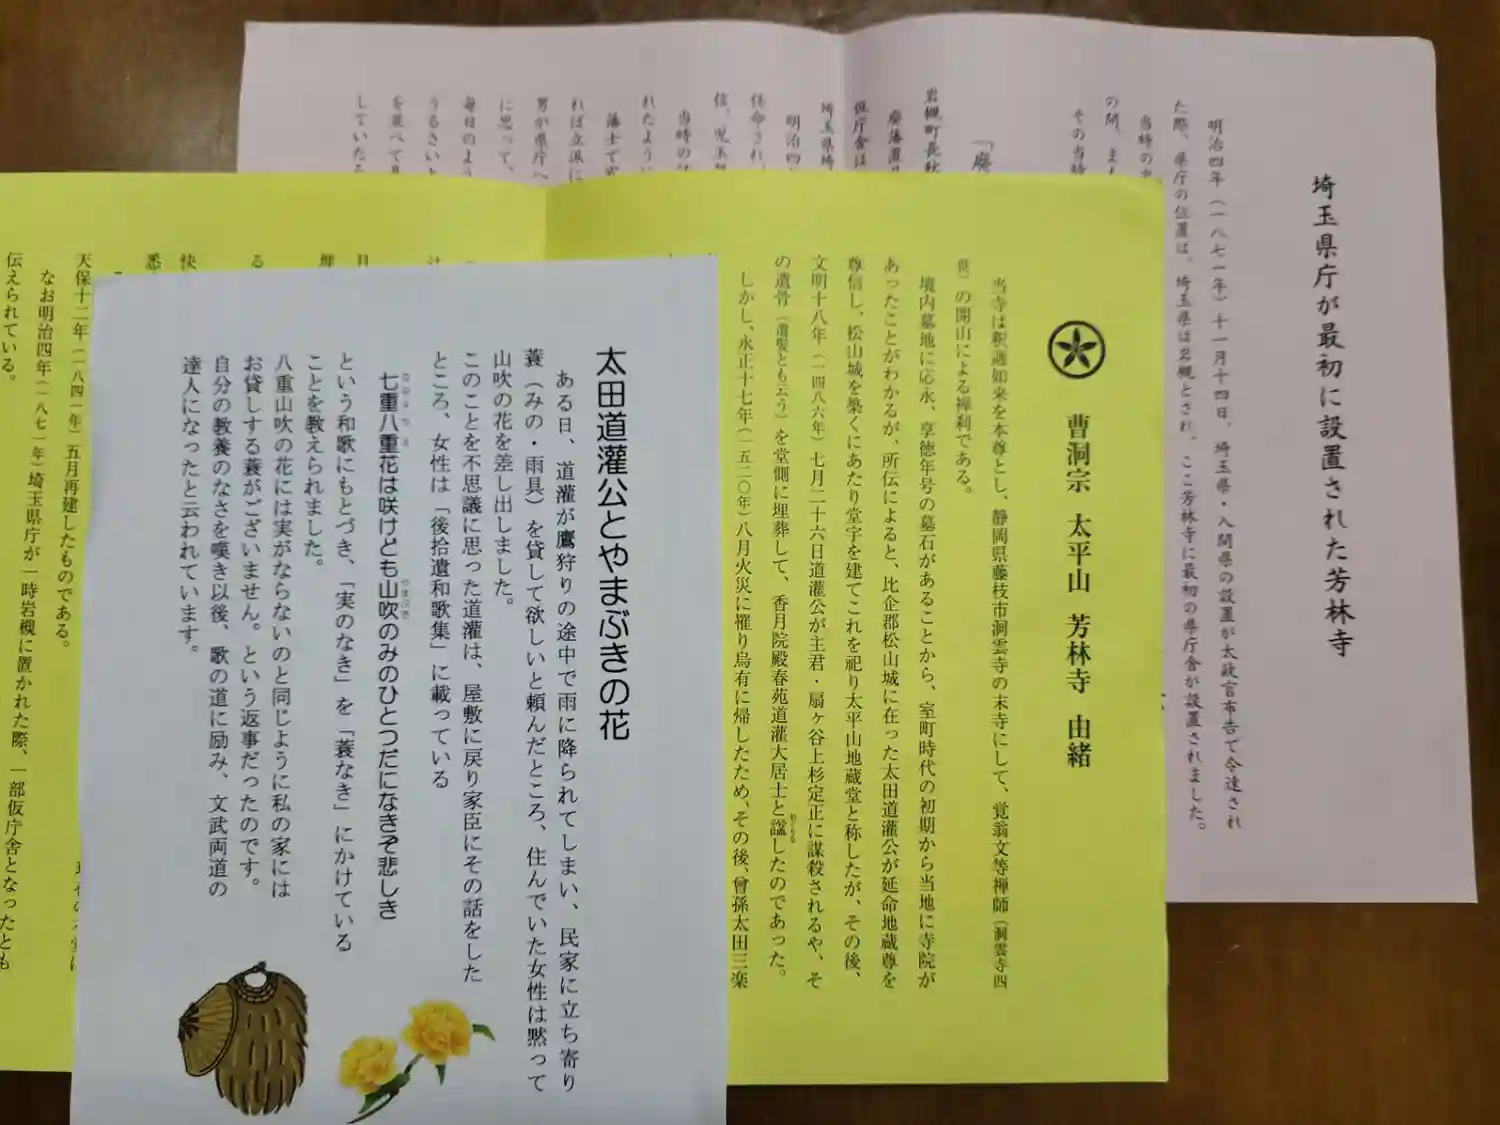 埼玉県庁が最初に設置された芳林寺
明治四年(一八七一年)十一月十四日、埼玉県・入間県の設置が太政官布告で令達され
た際、県庁の位置は、埼玉県は岩槻とされ、ここ芳林寺に最初の県庁舎が設置されました。
当時の
の間、また
その当時
「廃
岩槻町長秋
廃藩置県
県庁舎は
埼玉県埼
明治四
任命され、
信、児玉
当時の
れたように
藩士で
れば立派に
男が県庁へ
に思って、
毎日のよう
うるさいと
を並べて
していた
曹洞宗 太平山 芳林寺 由緒
当寺は釈迦如来を本尊とし、静岡県藤枝市洞雲寺の末寺にして、覚翁文等禅師(洞雲寺四
世)の開山による禅刹である。
境内墓地に応永、享徳年号の墓石があることから、室町時代の初期から当地に寺院が
あったことがわかるが、所伝によると、比企郡松山城に在った太田道灌公が延命地蔵尊を
尊信し、松山城を築くにあたり堂宇を建てこれを祀り太平山地蔵堂と称したが、その後、
文明十八年(一四八六年)七月二十六日道灌公が主君・扇ヶ谷上杉定正に謀殺されるや、そ
の遺骨(遺髪とも云う)を堂側に埋葬して、香月院殿春苑道灌大居士と諡したのであった。
しかし、永正十七年(一五二〇年)八月火災に罹り烏有に帰したため、その後、曾孫太田三楽
る
快
悉
天保十二年(一八四一年)五月再建したものである。
なお明治四年(一八七一年)埼玉県庁が一時岩槻に置かれた際、一部仮庁舎となったとも
伝えられている。
太田道灌公とやまぶきの花
ある日、道灌が鷹狩りの途中で雨に降られてしまい、民家に立ち寄り
蓑(みの・雨具)を貸して欲しいと頼んだところ、住んでいた女性は黙って
山吹の花を差し出しました。
このことを不思議に思った道灌は、屋敷に戻り家臣にその話をした
ところ、女性は「後拾遺和歌集」に載っている
七重八重花は咲けども山吹のみのひとつだになきぞ悲しき
という和歌にもとづき、「実のなき」を「蓑なき」にかけている
ことを教えられました。
八重山吹の花には実がならないのと同じように私の家には
お貸しする蓑がございません。という返事だったのです。
自分の教養のなさを嘆き以後、歌の道に励み、文武両道の
達人になったと云われています。